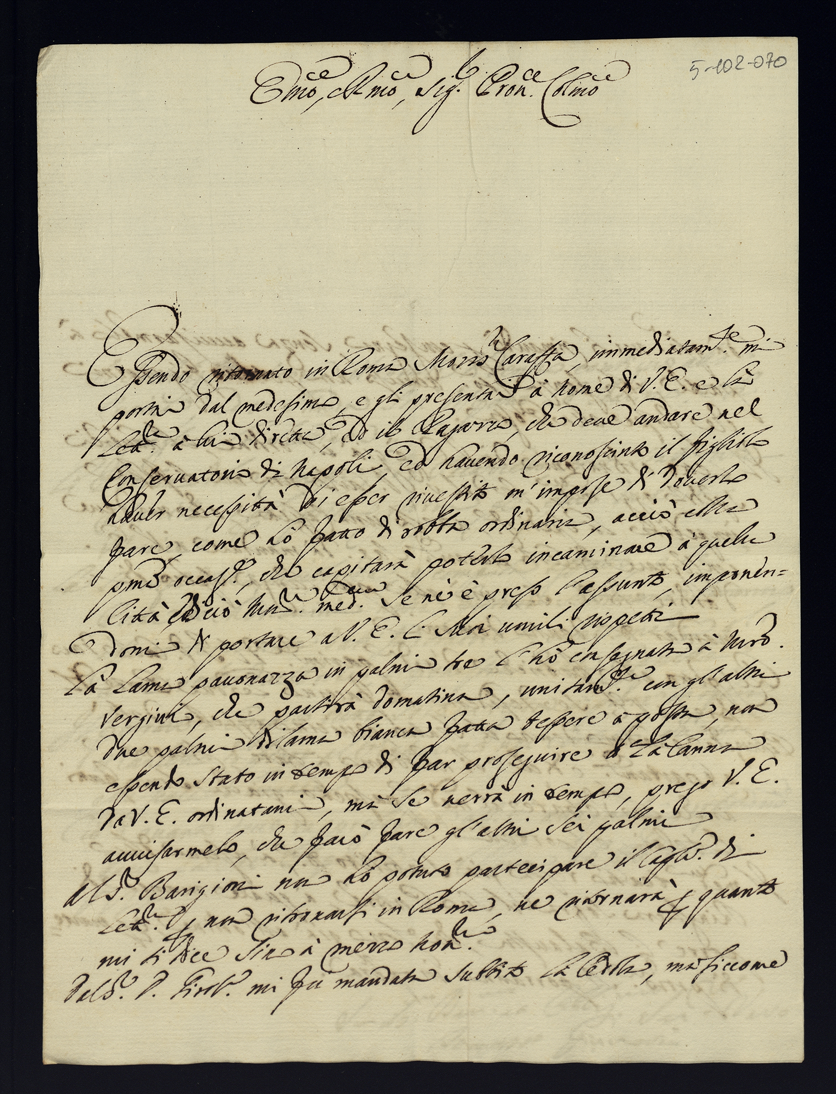 5-102-070
Emo, e Rmo, Sig.r Pron.e Colmo
Essendo ritornato in Roma Monsr Caraffa, immediatam.te mi
portai dal medesimo, e gli presentai à nome di V. E. e la
Lett.a à lui diretta, ed il Ragazzo, che deve andare nel
Conservatorio di Napoli, ed havendo riconosciuto il figliolo
haver necessità di esser rivestito m'impose di doverlo
fare, come hò fatto di robba ordinaria, acciò colla
pma occas.e, che capitarà poterlo incaminare à quella
Città e di ciò Mons.r med.mo se nè è preso l'assunto, imponen=
domi di portare a V. E. li suoi umili rispetti
La Lama pavonazza in palmi tre l'hò consegnata à Turo
Vergini, che partirà domatina, unitam.te con gl'altri
due palmi di lama bianca fatta tessere a posta, non
essendo stato in tempo di far proseguire à la canna
da V. E. ordinatami, mà se verrà in tempo, prego V. E.
avvisarmelo, che farò fare gl'altri sei palmi
Al S.r Barigioni non hò potuto partecipare il Cap.o di
Lett.a p non ritrovarsi in Roma, ne ritornarà p quanto
mi si dice sin à mezzo
Dal S.r P. mi fù mandata subbito la Cedola, ma siccome